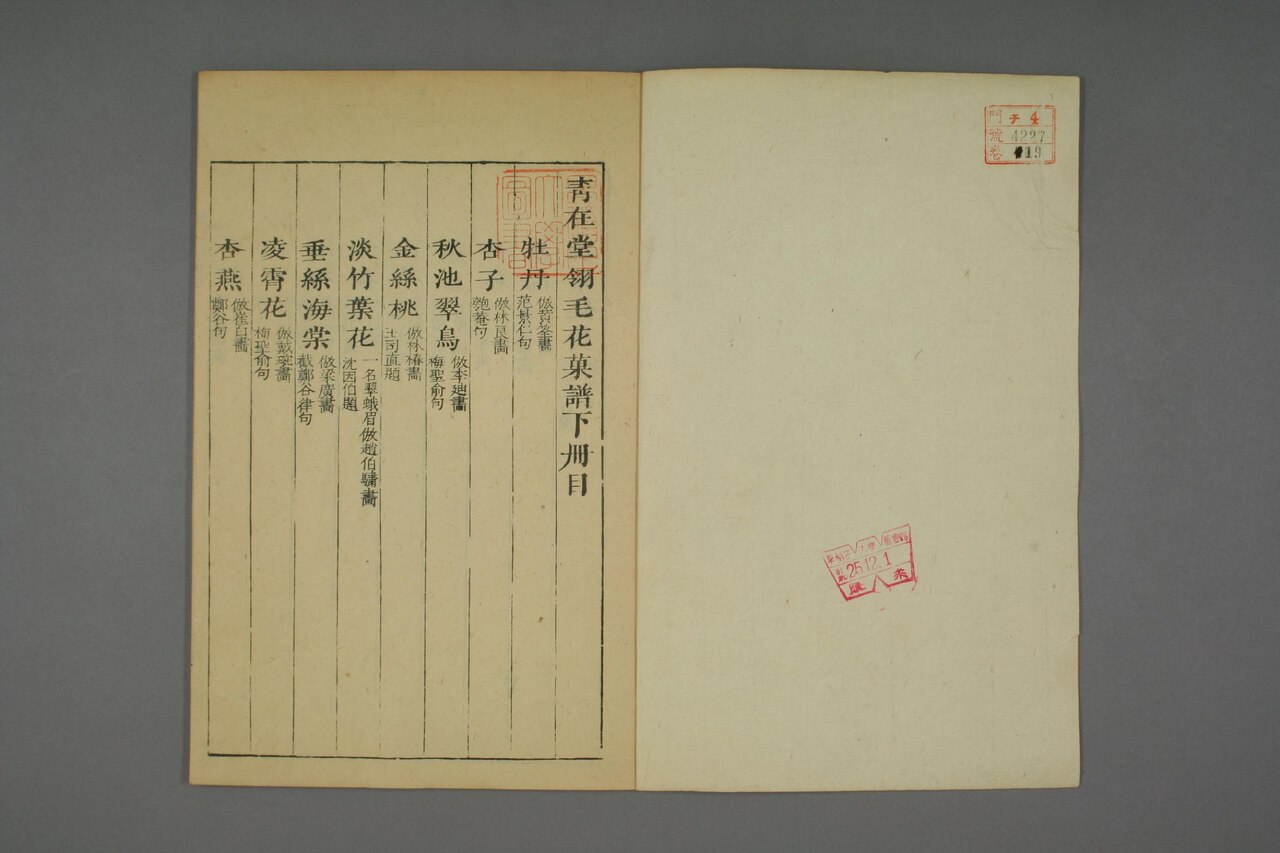 門 チ 4
號 4227
卷 19
25.12.1
靑在堂翎毛花菓譜下冊目
牡丹 倣黃筌畵 范景仁句
杏子 倣林良畵 匏菴句
秋池翠鳥 倣李迪畵 梅聖俞句
金絲桃 倣林椿畵 王司直題
淡竹葉花 一名翠蛾眉倣趙伯驌畵 沈因伯題
垂絲海棠 倣梁廣畵 截鄭谷律句
凌霄花 倣戴琬畵 梅聖俞句
杏燕 倣崔白畵 鄭谷句